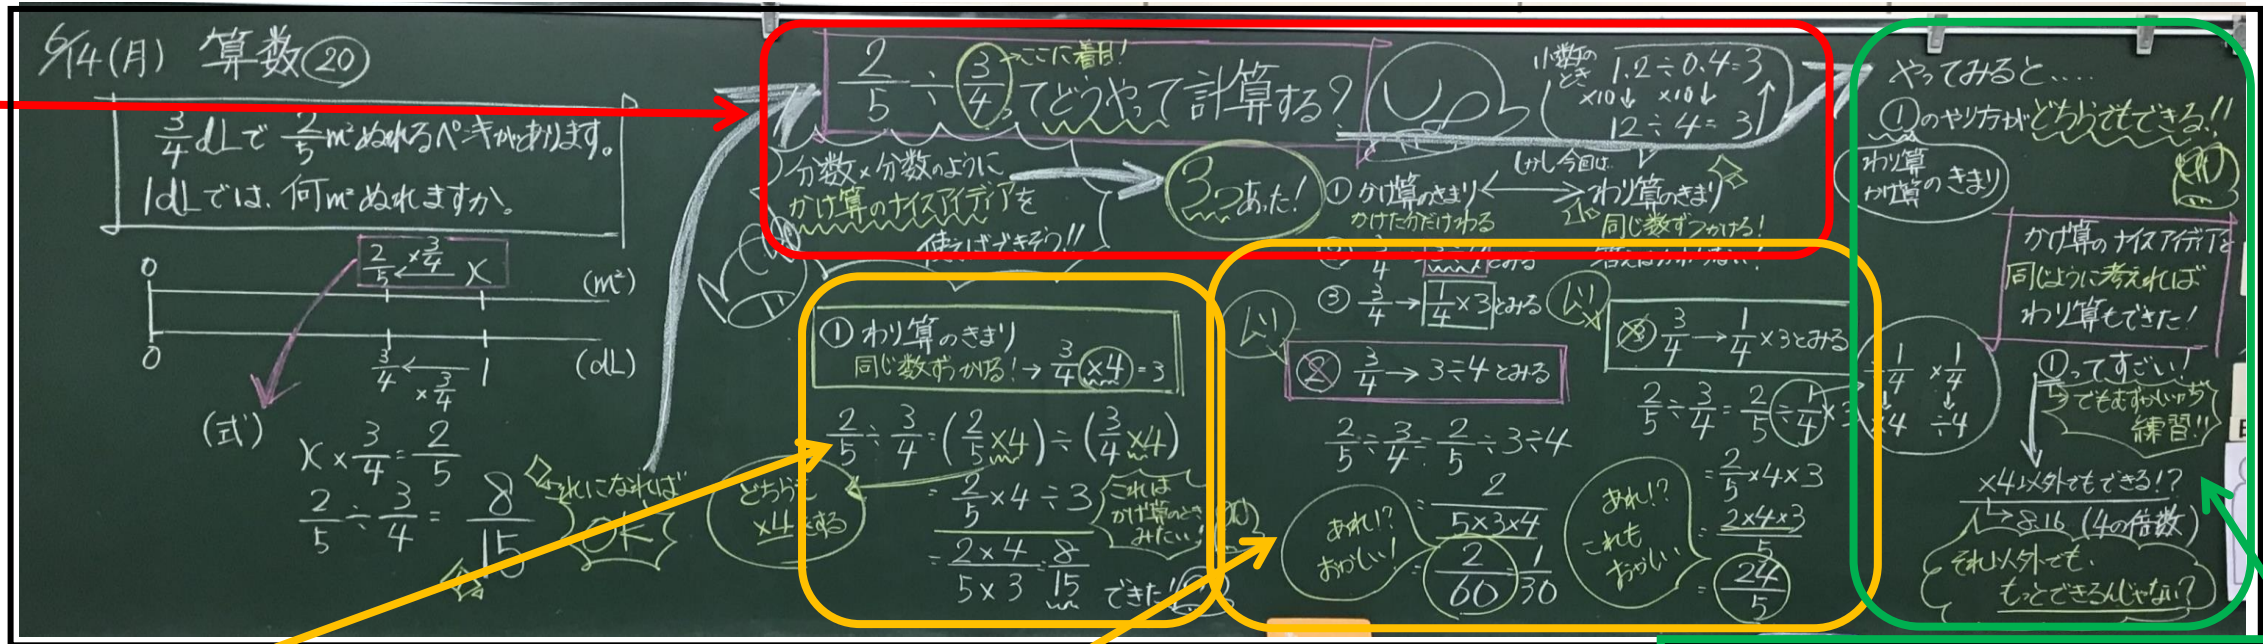 6/14(月) 算数⑳
3/4dLで 2/5m²ぬれるペンキがあります。
1dLでは、何m²ぬれますか。
0
2/5 ×3/4 ← x
(m²)
0
3/4 ← 1
×3/4
(dL)
(式)
x × 3/4 = 2/5
2/5 ÷ 3/4 = 8/15
これになれば
OK
2/5 ÷ 3/4 ってどうやって計算する?
→ここに着目!
小数のとき
1.2÷0.4=3
×10↓ ×10↓
12÷4=3
分数×分数のように
かけ算のナイスアイディアを
使えばできそう!!
3つあった!
しかし今回は…
① かけ算のきまり ←→ わり算のきまり
かけた分だけわる
同じ数ずつかける!
答えはかわらない!
② 3/4→3÷4とみる
③ 3/4→1/4×3とみる
① わり算のきまり
同じ数ずつかける!→3/4×4=3
2/5÷3/4=(2/5×4)÷(3/4×4)
どちらも
×4をする
=2/5×4÷3
これは
かけ算のとき
みたい!
=2×4/5×3=8/15
できた!
ムリ
② 3/4→3÷4とみる
2/5÷3/4=2/5÷3÷4
=2/5×3×4
=2/60=1/30
あれ!?
おかしい!
ムリ
③ 3/4→1/4×3とみる
2/5÷3/4=2/5÷1/4×3
÷1/4 ×1/4
↓ ↓
×4 ÷4
=2/5×4×3
=2×4×3/5
=24/5
あれ!?
これも
おかしい
やってみると....
①のやり方がどちらでもできる!!
わり算
かけ算のきまり
かけ算のナイスアイディアと
同じように考えれば
わり算もできた!
①ってすごい!
でもむずかしいから
練習!!
×4以外でもできる!?
→8.16 (4の倍数)
それ以外でも、
もっとできるんじゃない?